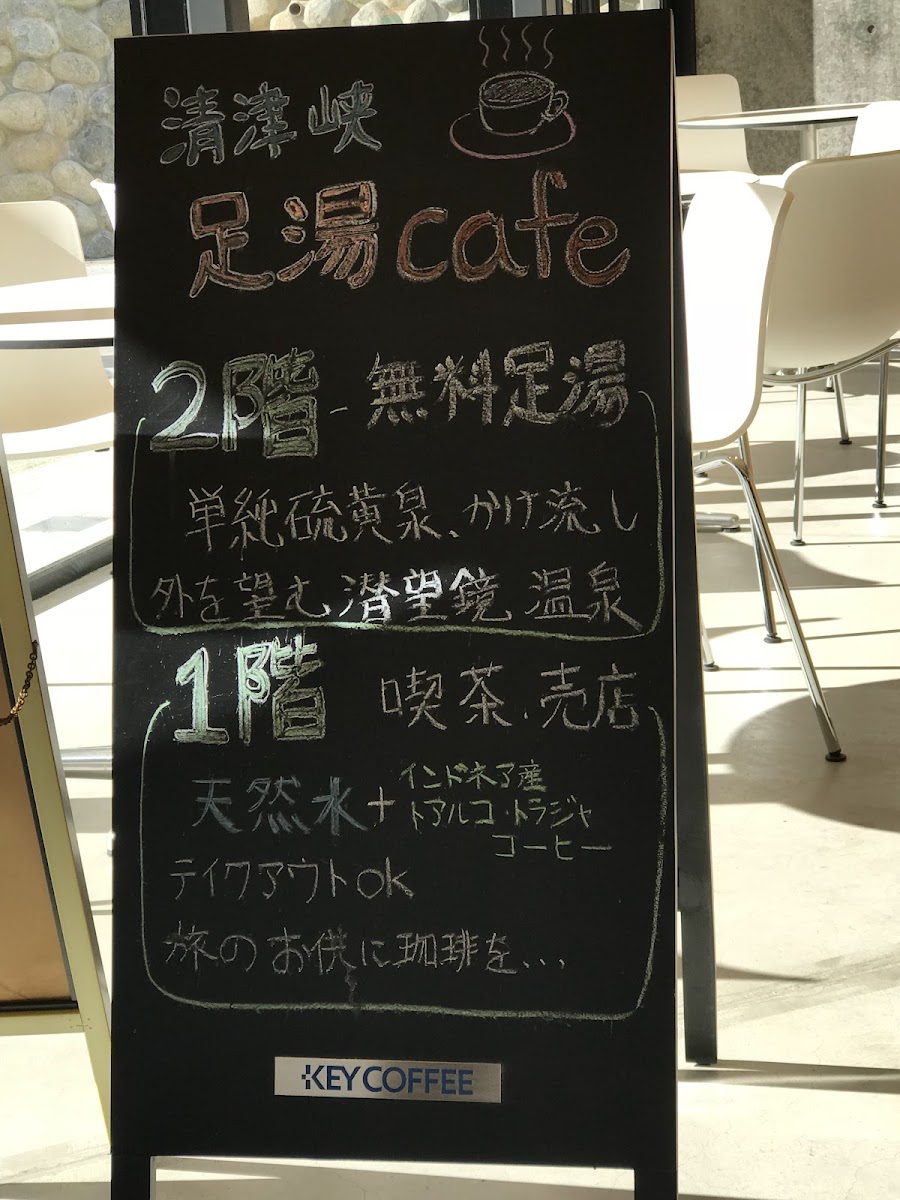 清津峡
足湯cafe
2階-無料足湯
単純硫黄泉、かけ流し
外を望む潜望鏡 温泉
1階 喫茶.売店
天然水+インドネア産
トアルコ・トラジャ
コーヒー
テイクアウトok
旅のお供に珈琲を...
KEY COFFEE